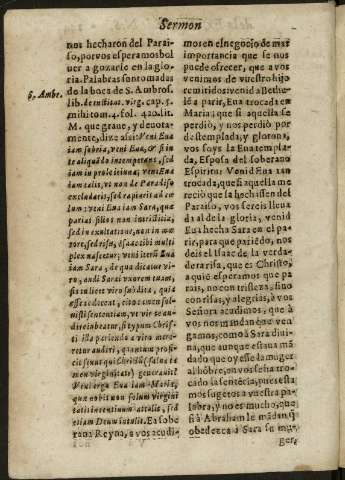 Sermon
nos hecharon del Parai-
so, por vos esperamos bol
uer a gozarle en la glo
ria. Palabras son tomadas
de la boca de S. Ambros.
lib. de institut. virg. cap. 5.
mihi tom. 4. fol. 420. lit.
M. que graue, y deuota-
mente, dize assi: Veni Eua
iam sobria, veni Eua, & si in
te aliquãdo intemperans, sed
iam in prole ieiuna; veni Eua
iam talis, vt non de Paradiso
excludaris, sed rapiaris ad cæ
lum: veni Eua iam Sara, quæ
parias filios non in tristicia,
sed in exultatione, non in mæ
rore, sed risu, & Isaac tibi multi
plex nascetur; veni iterũ Eua
iam Sara, de qua dicatur vi-
ro, audi Sarai vxorem tuam,
sis in licet viro subdita, quia
esse te decet, cito tamen sol-
uisti sententiam, vt vir te au-
dire iubeatur, si typum Chri-
sti illa pariendo a viro mere-
retur audiri, quantum profi-
cit sexus qui Christũ (salua ta
men virginitate) generauit?
Veni ergo Eua iam Maria,
quæ nobis non solum virgini
tatis incentiuum attulit, sed
etiam Deum intulit. Ea sobe
rana Reyna, a vos acudi-
6, Ambr.
mos en el negocio de mas
importancia que se nos
puede ofrecer, que a vos
venimos de vuestro hijo
remitidos: venid a Bethe-
lẽ a parir, Eua trocada en
Maria; que si aquella se
perdiò, y nos perdiò por
destemplada, y glotona,
vos soys la Eua templa-
da, Esposa del soberano
Espiritu: Venid Eua tan
trocada, que si aquella me
reciò que la hechassen del
Parayso, vos sereis lleua
da al de la gloria, venid
Eua hecha Sara en el pa-
rir, para que pariẽdo, nos
deis el Isaac de la verda-
dera risa, que es Christo,
a quiẽ esperamos que pa
rais, no con tristeza, sino
con risas, y alegrias, à vos
Señora acudimos, que à
vos nos mandan que ven
gamos, como à Sara diui-
na, que aunque està mã
dado que oyesse la muger
al hõbre, en vos se ha tro-
cado la sentẽcia, pues esta
mos sugetos a vuestra pa-
labra, y no es mucho, que
si à Abraham le mãdan, q̃
obedezca à Sara su mu-
ger,